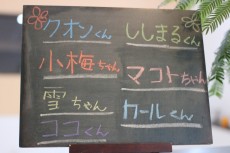 クオンくん
小梅ちゃん
雪ちゃん
ココくん
ししまるくん
マコトちゃん
カールくん